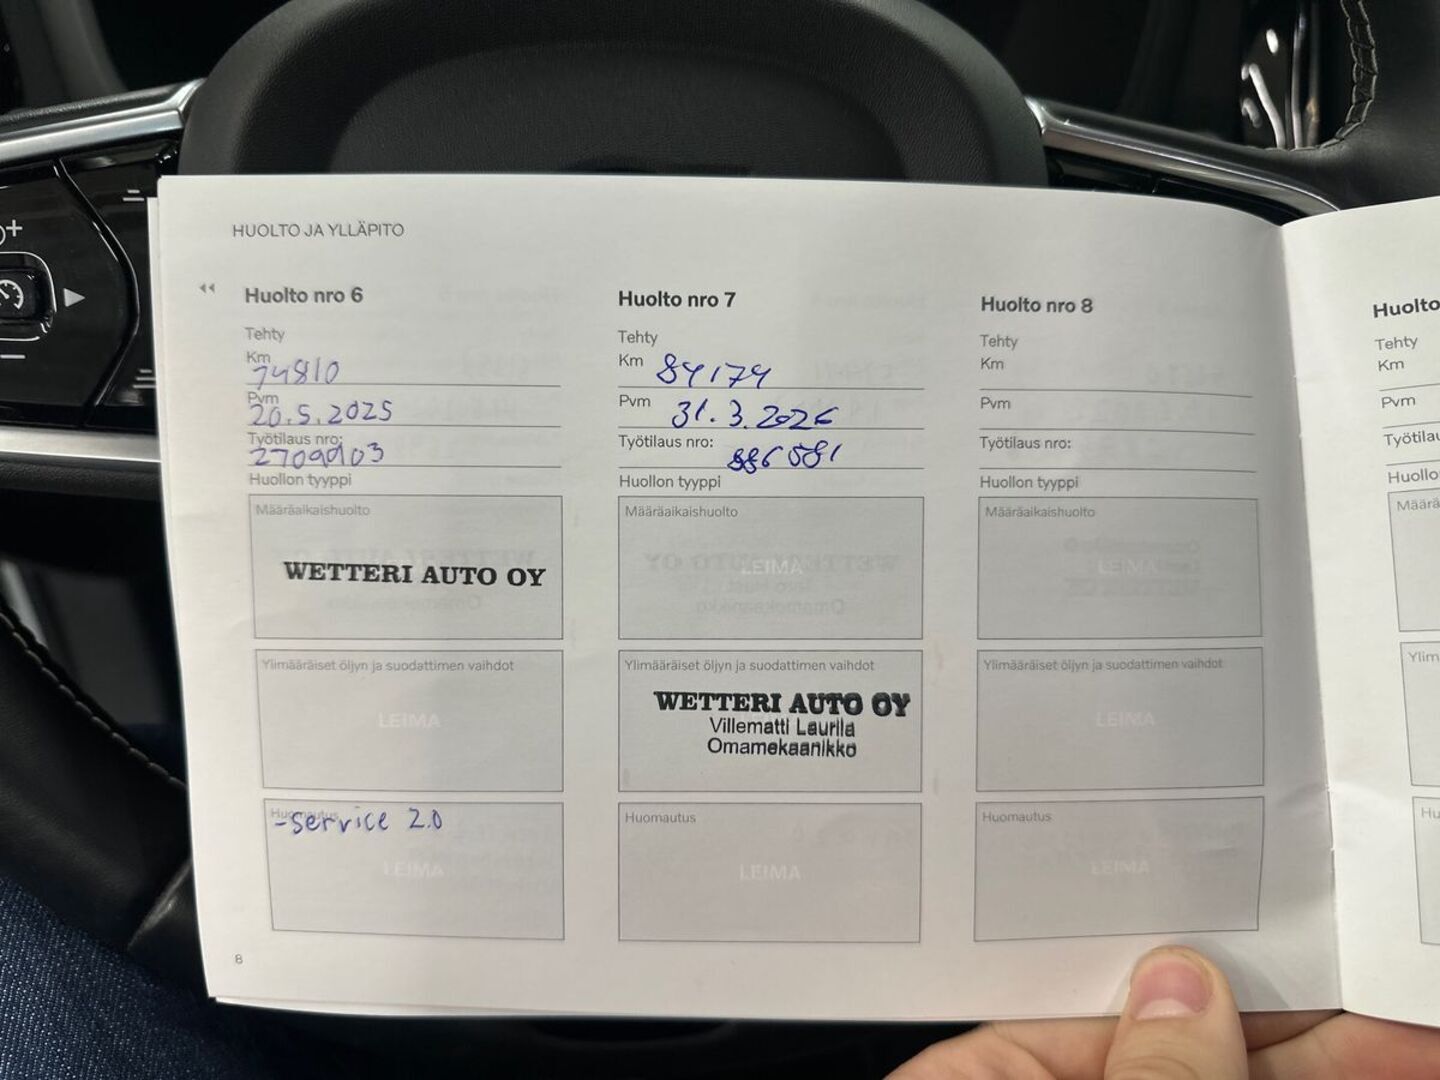 HUOLTO JA YLLÄPITO
Huolto nro 6
Tehty
Km
74810
Pvm
20.5.2025
Työtilaus nro:
Huollon tyyppi
Määräaikaishuolto
WETTERI AUTO OY
Ylimääräiset öljyn ja suodattimen vaihdot
LEIMA
Huomautus
-service 2.0
LEIMA
8
Huolto nro 7
Tehty
Km 84174
Pvm 31.3.2026
Työtilaus nro: 886581
Huollon tyyppi
Määräaikaishuolto
LEIMA
Ylimääräiset öljyn ja suodattimen vaihdot
WETTERI AUTO OY
Villematti Laurila
Omamekaanikko
Huomautus
LEIMA
Huolto nro 8
Tehty
Km
Pvm
Työtilaus nro:
Huollon tyyppi
Määräaikaishuolto
LEIMA
Ylimääräiset öljyn ja suodattimen vaihdot
LEIMA
Huomautus
LEIMA
Huolto
Tehty
Km
Pvm